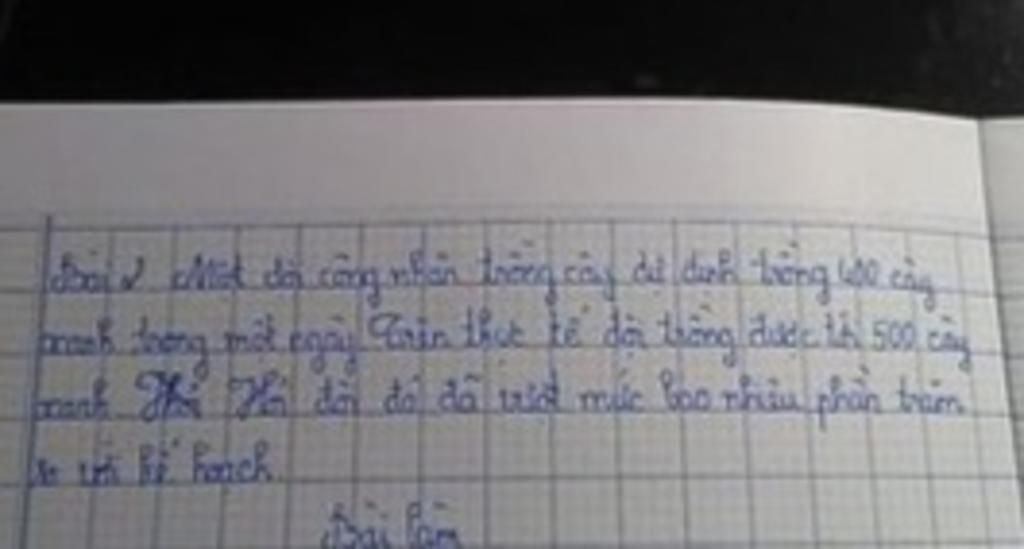 Bài 2 Một đội công nhân trồng cây dự định trồng 400 cây
xanh trong một ngày Trên thực tế đội trồng được tới 500 cây
xanh Hỏi đội đó đã vượt mức bao nhiêu phần trăm
so với kế hoạch.
Bài làm